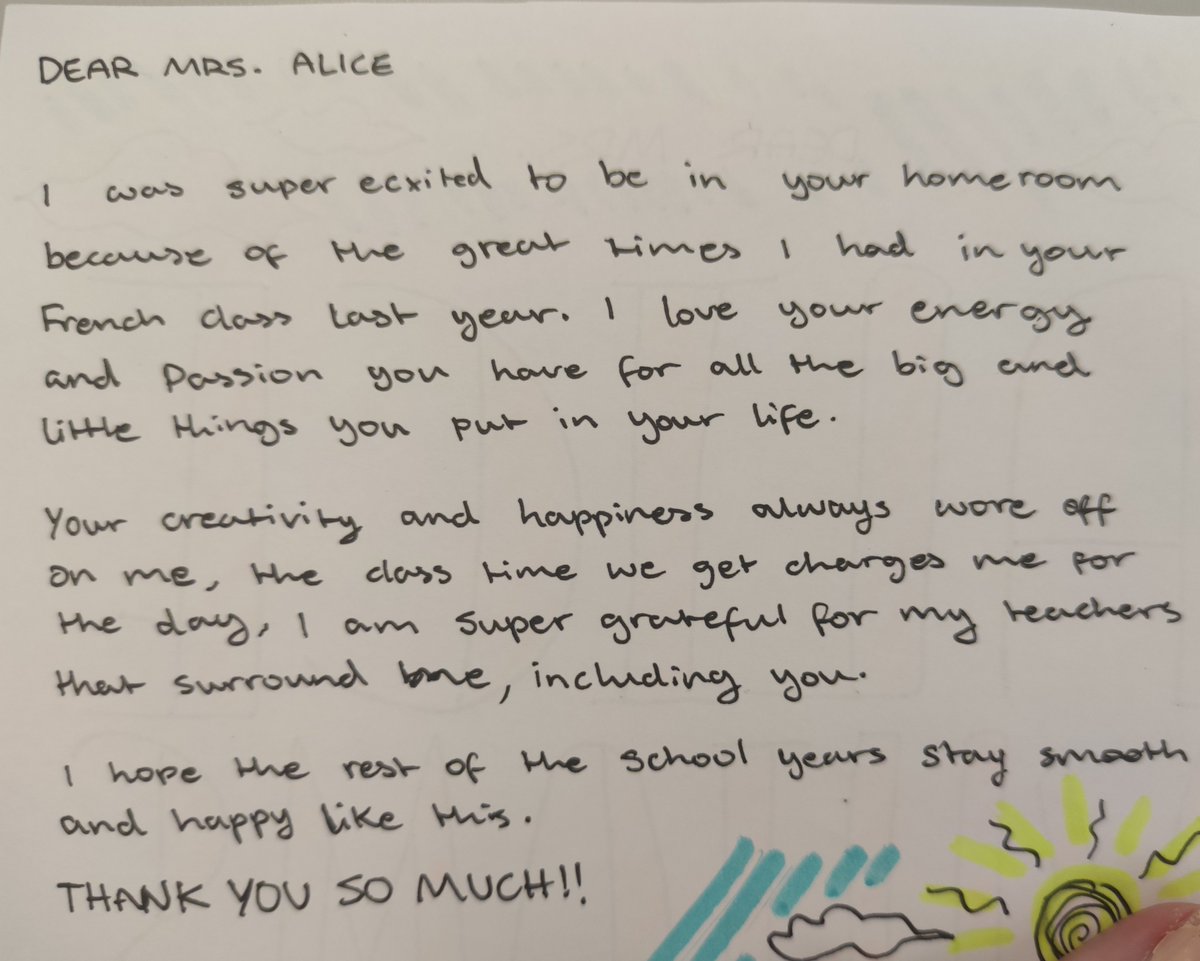 DEAR MRS. ALICE
I was super ecxited to be in your homeroom
because of the great times I had in your
French class last year. I love your energy
and passion you have for all the big and
little things you put in your life.
Your creativity and happiness always wore off
on me, the class time we get charges me for
the day, I am super grateful for my teachers
that surround me, including you.
I hope the rest of the school years stay smooth
and happy like this.
THANK YOU SO MUCH!!